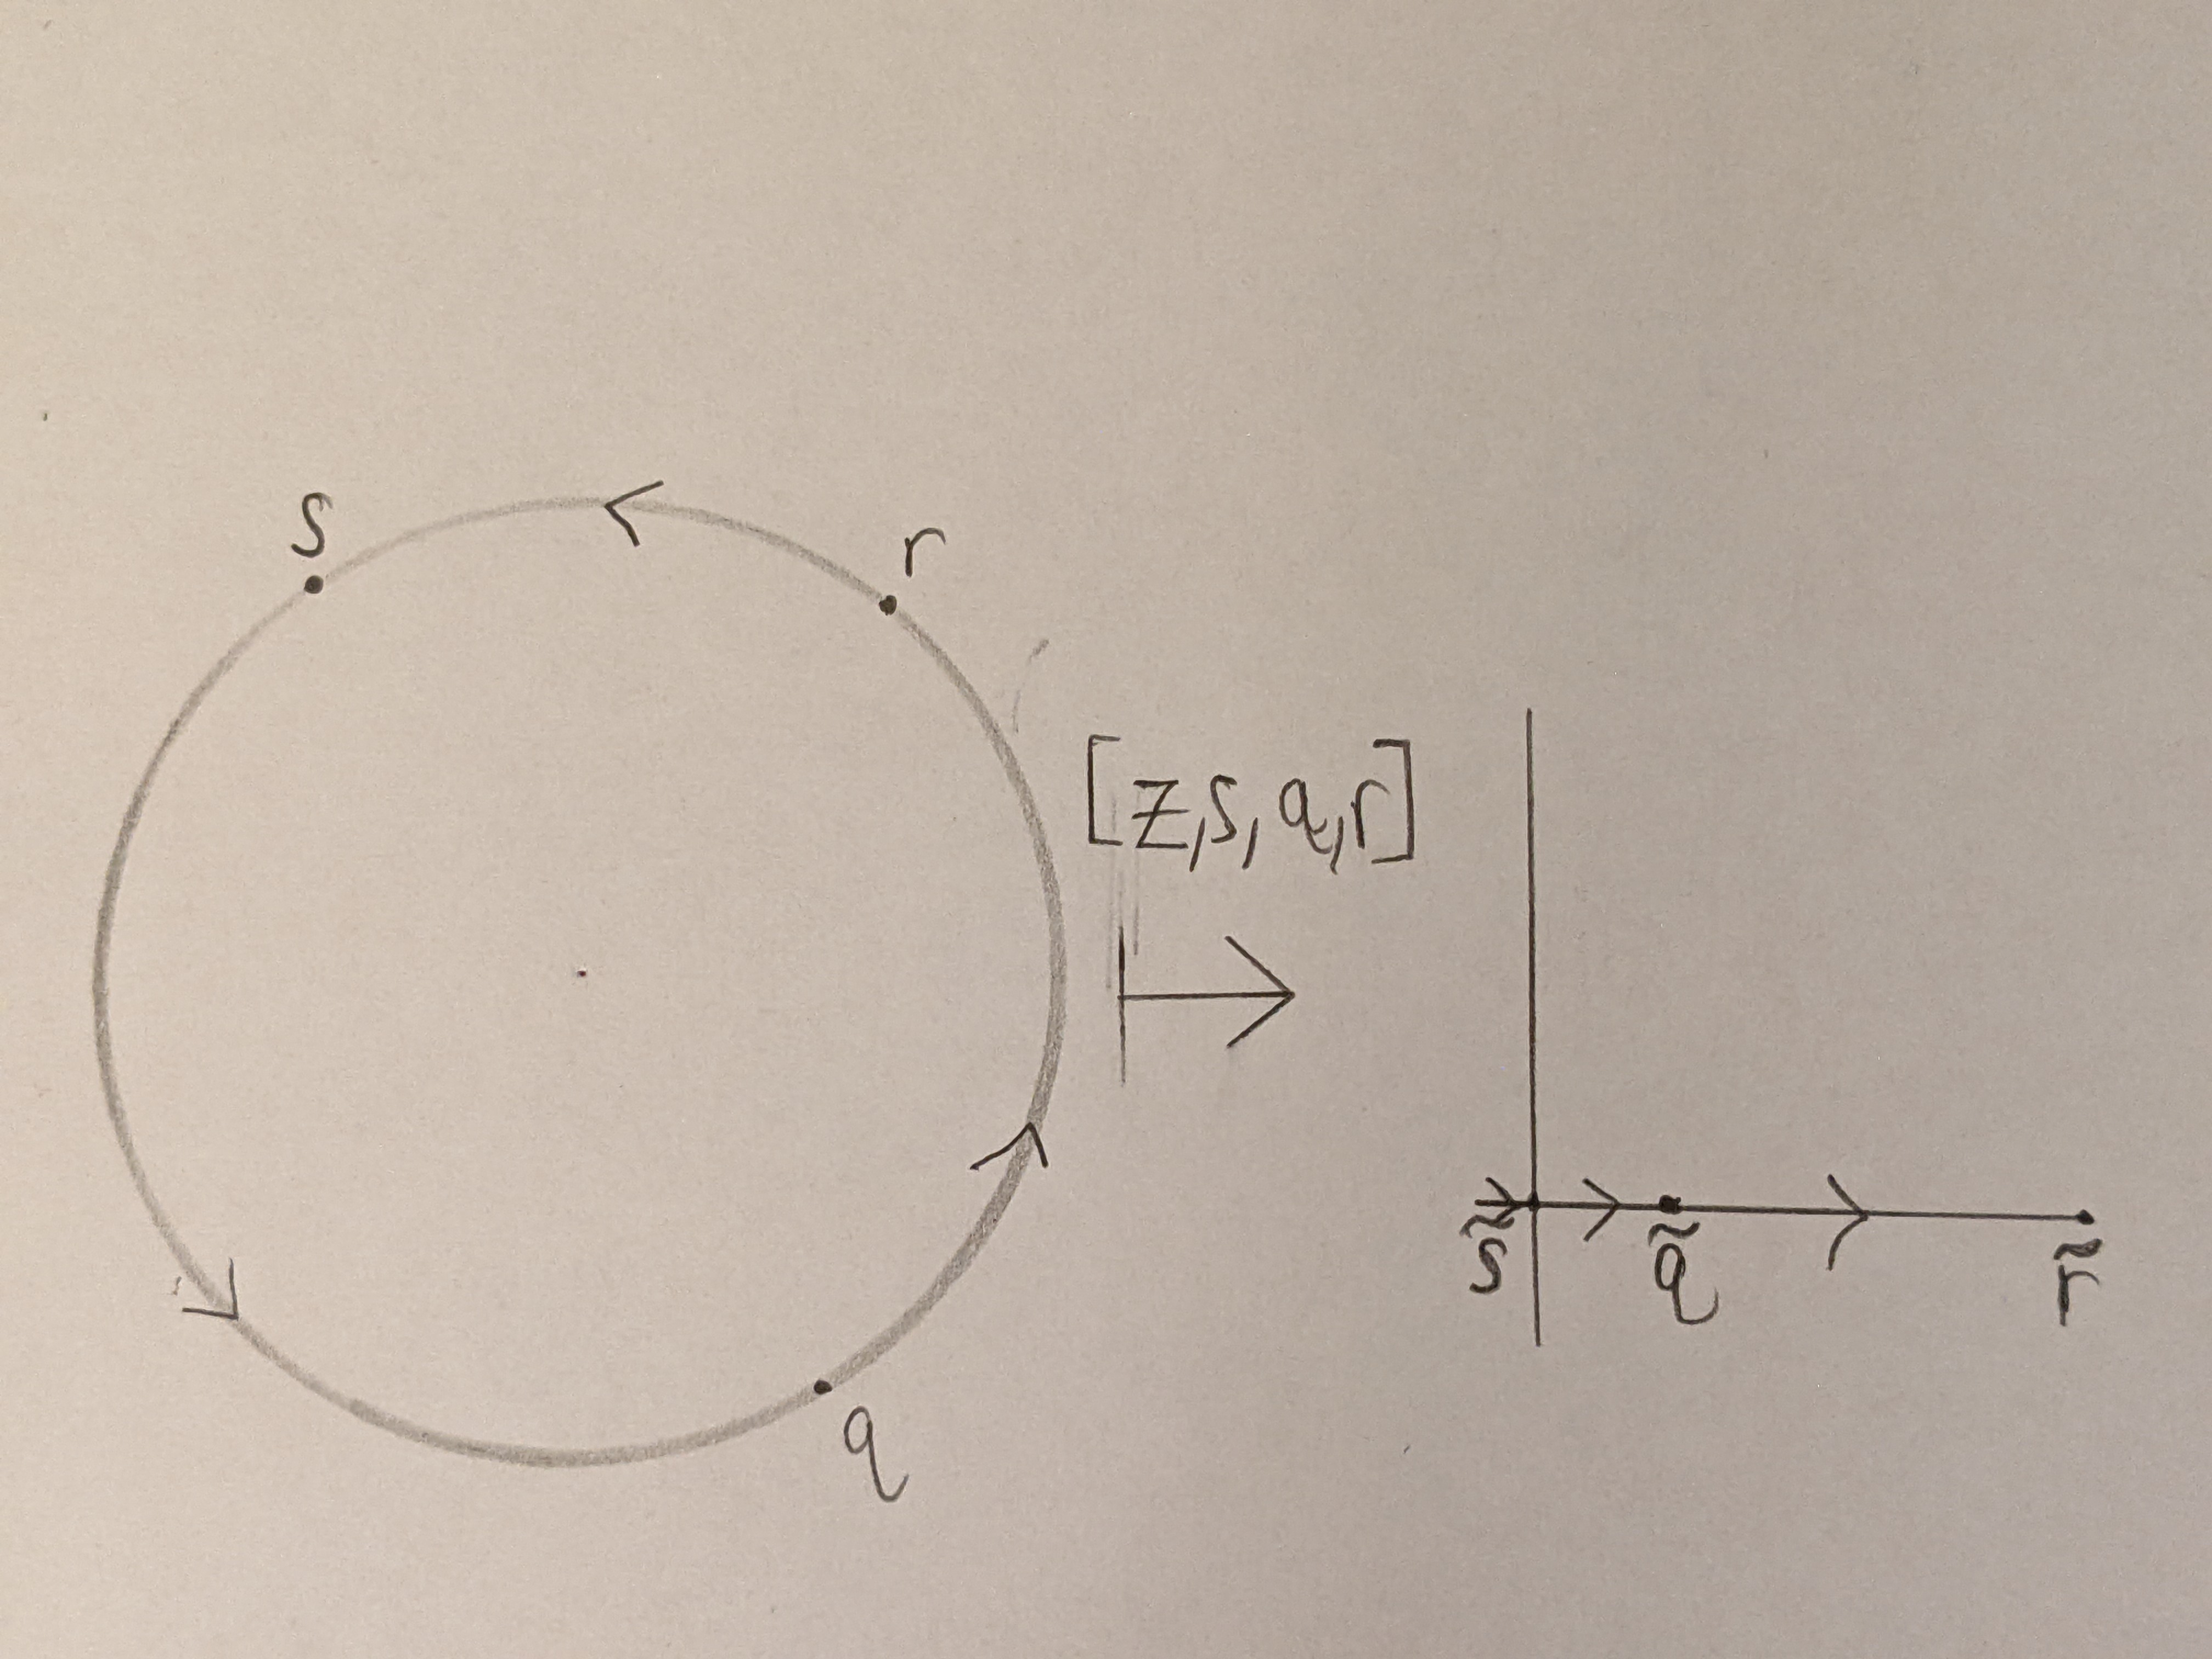 s
r
[z,s,q,r]
s̃
q̃
r̃
q